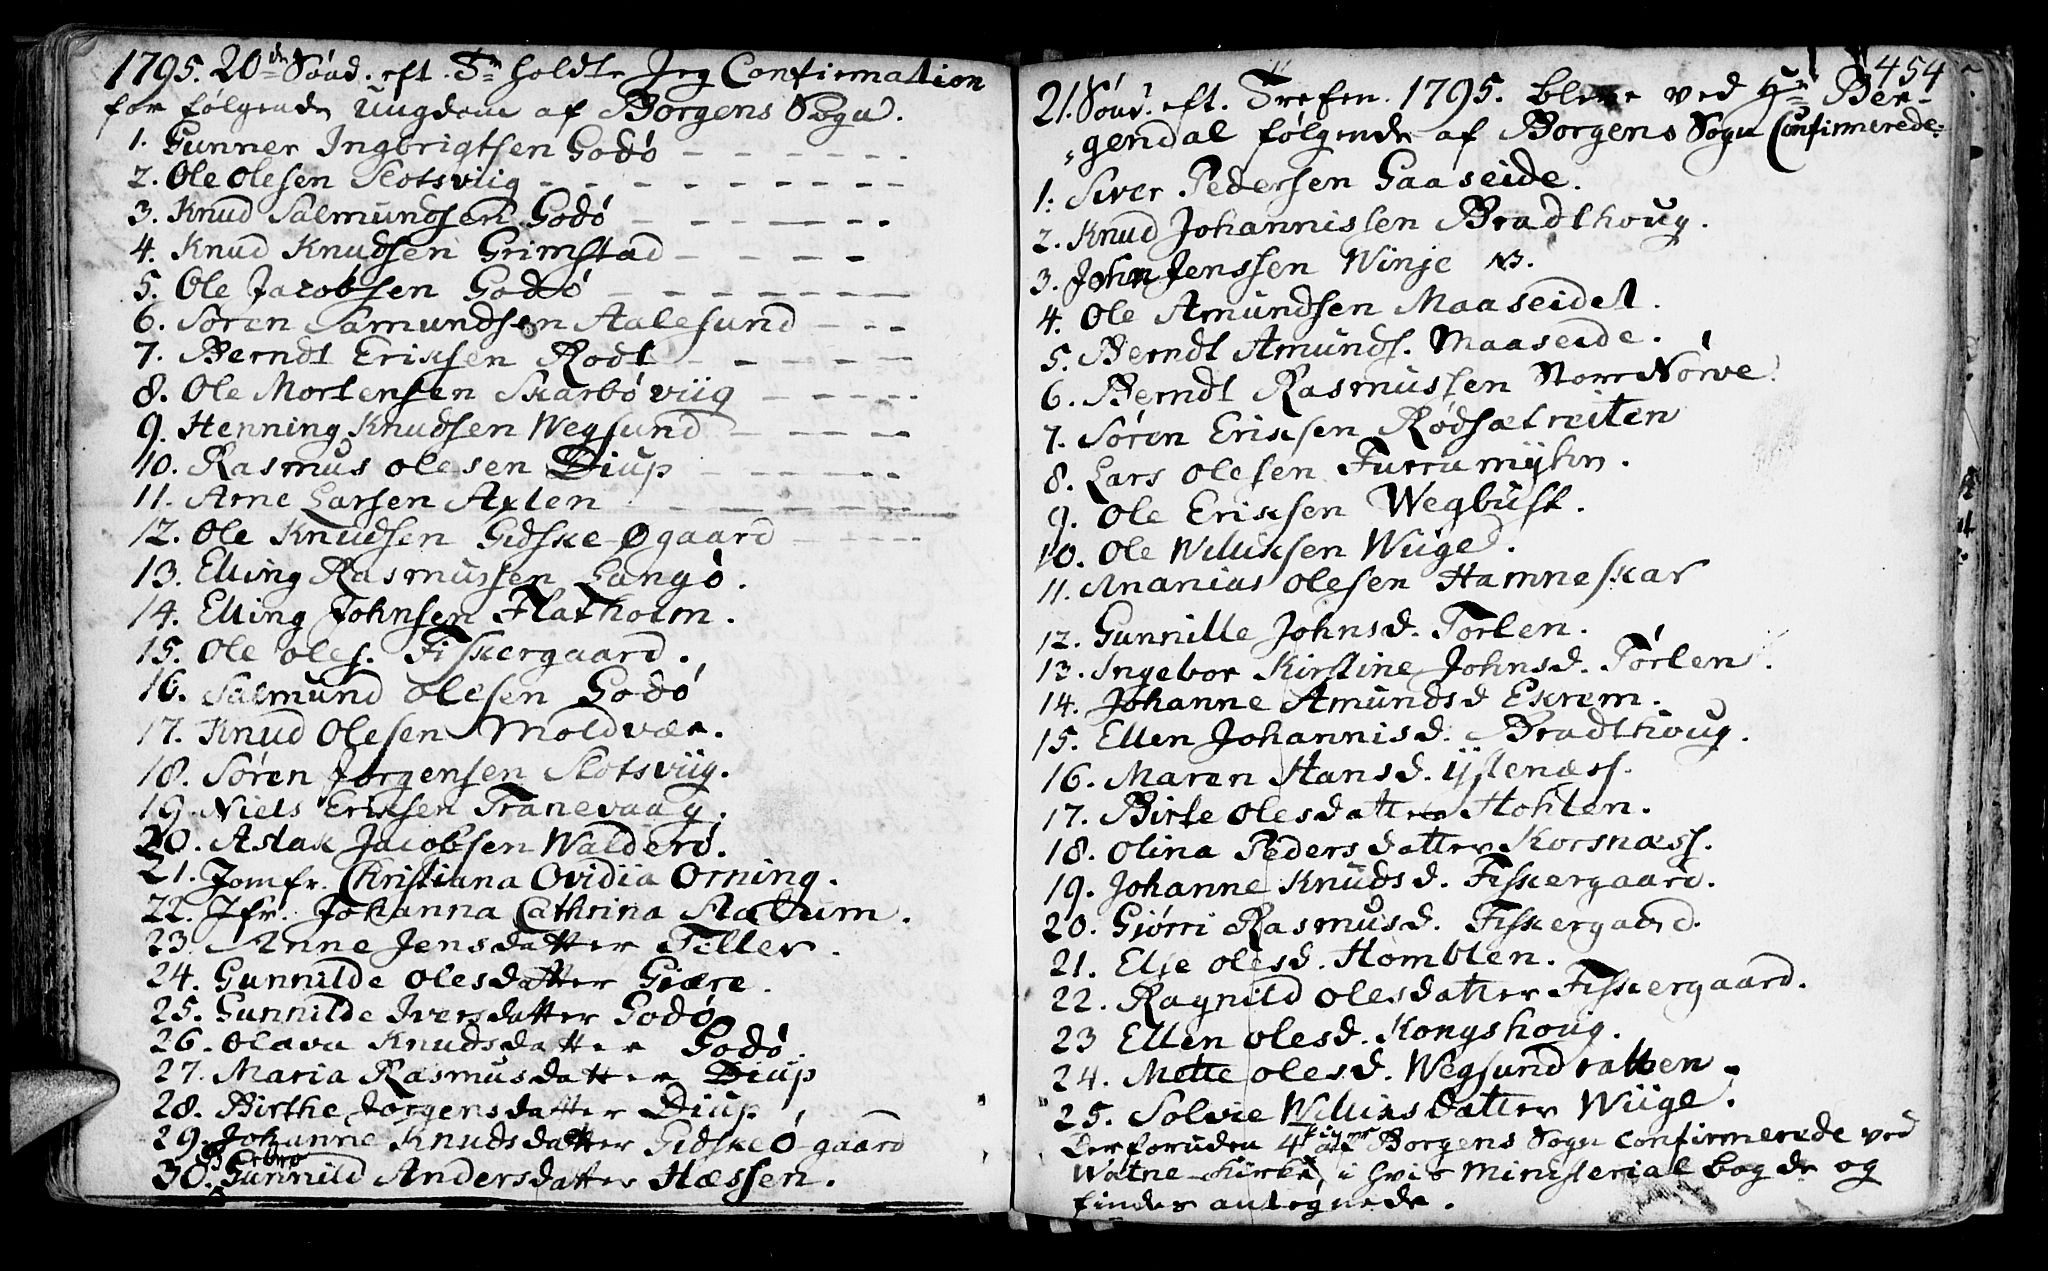 1795. 20de Sönd. eft. Tr. holdte Jeg Confirmation
for følgende Ungdom af Borgens Sogn.
1. Gunner Ingbrigtsen Godö
2. Ole Olesen Slotsviig
3. Knud Salmundsen Godö
4. Knud Knudsen Grimstad
5. Ole Jacobsen Godö
6. Sören Samundsen Aalesund
7. Berndt Erixsen Rödt
8. Ole Mortensen Skarböviig
9. Henning Knudsen Wegsund
10. Rasmus Olesen Diup
11. Arne Larsen Axlen
12. Ole Knudsen Gidske Øgaard
13. Elling Rasmussen Langö.
14. Elling Johnsen Flatholm.
15. Ole Oles. Fiskergaard.
16. Salmund Olesen Godö
17. Knud Olesen Moldvær.
18. Sören Jörgensen Slotsviig.
19. Niels Erixsen Tranevaag.
20. Aslak Jacobsen Walderö.
21. Jomfr. Christiana Ovidia Orning.
22. Jfr. Johanna Cathrina Stabum.
23. Anne Jensdatter Filler.
24. Gunnilde Olesdatter Giære.
25. Gunnilde Iversdatter Godö
26. Olava Knudsdatter Godö.
27. Maria Rasmusdatter Diup
28. Birthe Jörgensdatter Diup
29. Johanne Knudsdatter Gidske Øgaard
Berbro
30. Gunnild Andersdatter Hæssen.
454
21. Sönd. eft. Trefen. 1795. bleve ved Hr Ber-
gendal følgende af Borgens Sogn Confirmerede:
1. Siver Pedersen Gaaseide.
2. Knud Johannissen Bradthoug.
3. John Jenssen Winje NB.
4. Ole Amundsen Maaseidet.
5. Berndt Amunds. Maaseide.
6. Berndt Rasmussen Store Nörve.
7. Sören Erixsen Rödsætreiten
8. Lars Olesen Furrumyhrn.
9. Ole Erixsen Wegbust.
10. Ole Willixsen Wiige.
11. Ananias Olesen Hamneskar
12. Gunnille Johnsd. Törlen.
13. Ingebor Kirstine Johnsd. Törlen.
14. Johanne Amundsd Exrem.
15. Ellen Johannisd. Bradthoug.
16. Maren Hansd. Ystenæss.
17. Birte Olesdatter Hohlen.
18. Olina Pedersdatter Korsnæss.
19. Johanne Knudsd. Fiskergaard.
20. Gjörri Rasmusd. Fiskergaard.
21. Else Olesd. Homblen.
22. Ragnild Olesdatter Fiskergaard.
23 Ellen Olesd. Kongshoug.
24. Mette Olesd. Wegsundratten.
25. Solvie Willixsdatter Wiige.
Desforuden 4 piger af Borgens Sogn confirmerede ved
Watne Kirke, i hvis Ministerial bog de og
findes antegnede.